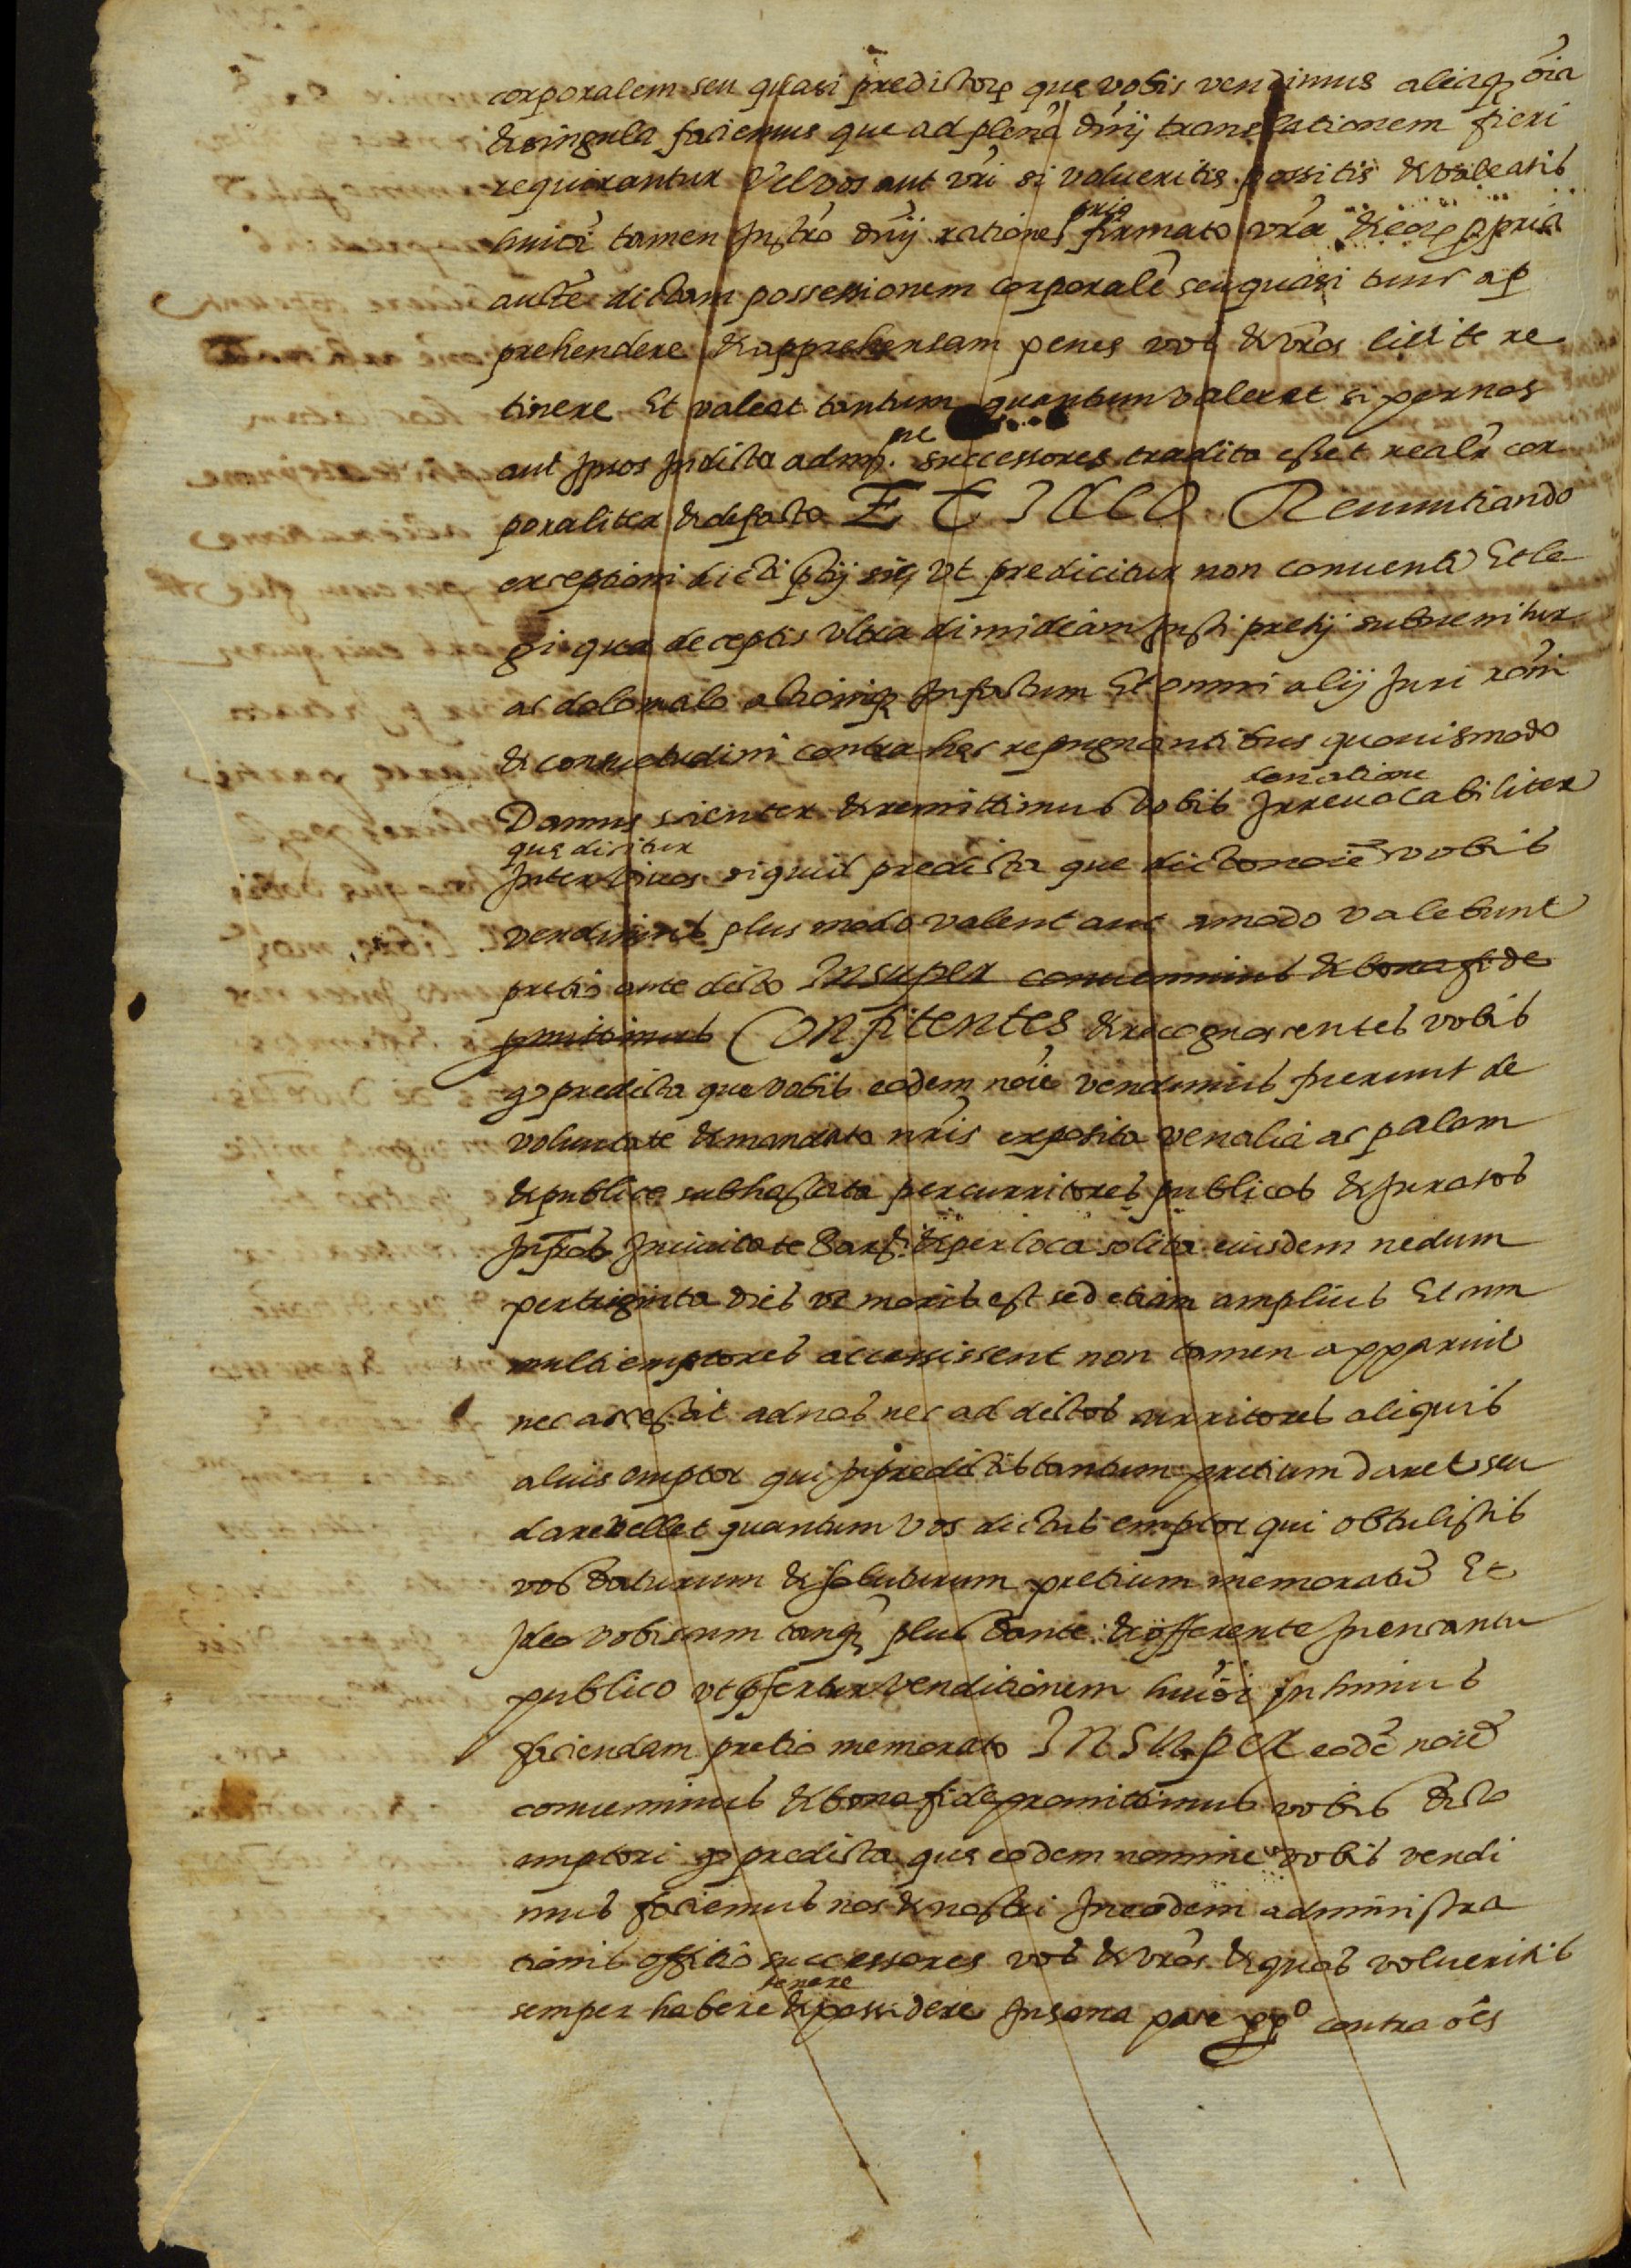 corporalem seu quasi predictorꝝ que vobis vendimus aliaqꝫ oĩa
& singula faciemus que ad plenã dñij translationem fieri
requirantur Vel vos aut vr̃i si volueritis possitis & valeatis
huiõi tamen Instr̃o dñij rationes prio firmato vr̃a & eoꝝ ꝓpria
aucte dictam possessionem corporalẽ seu quasi tunc ap
prehendere & apprehensam penes vos & vr̃os licite re
tinere Et valeat tantum quantum valeret si per nos
aut Ipsos In dicta adm.ne successores tradita esset realr̃ cor
poraliter & de facto ET IDEO Renuntiando
exceptioni dicti p̃tij sic Vt predicitur non conventi Et le
gi qua deceptis Vltra dimidiam Justi pretij subvenitur
ac dolo malo actioniqꝫ In factum Et omni alij Juri rõni
& consuetudini contra hec repugnantibus quovismodo
Damus scienter & remittimus vobis donatione Irrevocabiliter
que dicitur
Inter vivos siquid predicta que dicto noiẽ vobis
vendimus plus modo valent aut amodo valebunt
pretio ante dicto Insuper convenimus & bona fide
promittimus Confitentes & recognoscentes vobis
ꝙ predicta que vobis eodem noiẽ vendimus fuerunt de
voluntate & mandato nr̃is exposita venalia ac palam
& publice subhastata per curritores publicos & Juratos
In civitate Barſ. & per loca solita eiusdem nedum
per triginta dies vt moris est sed etiam amplius Et cum
multi emptores accessissent non tamen apparuit
nec accessit ad nos nec ad dictos curritores aliquis
alius emptor qui In predictis tantum pretium daret seu
dare vellet quantum Vos dictus emptor qui obtulistis
vos daturum & soluturum pretium memoratũ Et
Ideo vobiscum tanqꝫ plus dante & offerente In encantu
publico vt ꝑfertur venditionem huiõi In himus
faciendam pretio memorato INSUPER eodẽ noiẽ
convenimus & bona fide promittimus vobis dicto
emptori ꝙ predicta que eodem nomine vobis vendi
mus faciemus nos & nostri In eodem administra
tionis offitio successores vos & vr̃os & quos volueritis
semper habere tenere & possidere In sana pace ꝑpº contra oẽs